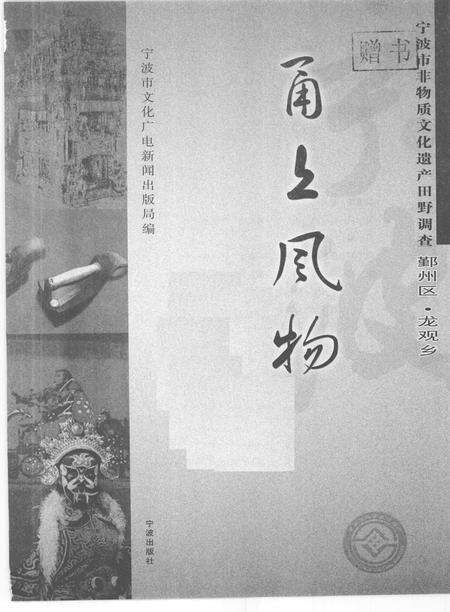 宁波市非物质文化遗产田野调查
鄞州区·龙观乡
赠书
甬上风物
宁波市文化广电新闻出版局编
宁波出版社